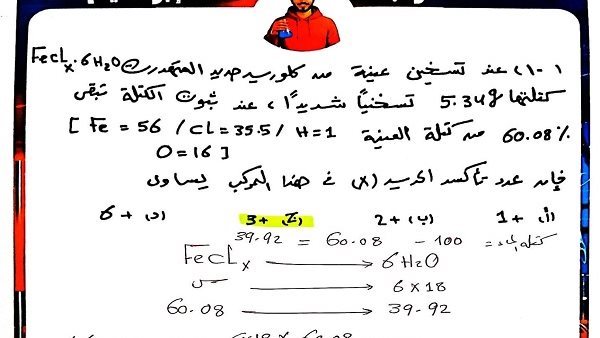 ١٠١) عند تسخين عينة من كلوريد حديد المتهدرت FeCLx.6H2O
كتلتها 5.34g تسخيناً شديداً ، عند ثبوت الكتلة تبقى
60.08% من كتلة العينة [ Fe = 56 / CL = 35.5 / H = 1
O = 16 ]
فإن عدد تأكسد الحديد (x) في هذا المركب يساوى
(أ) +1 (ب) +2 (ج) +3 (د) +6
كتلة = 100 - 60.08 = 39.92
FeCLx → 6H2O
س → 6×18
60.08 → 39.92